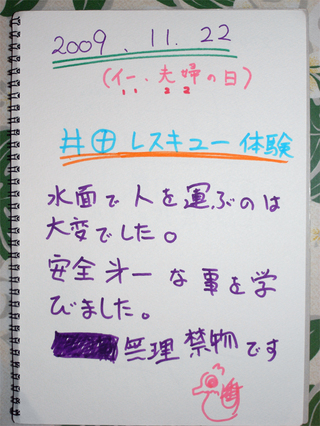 2009.11.22
(イー、夫婦の日)
11 22
井田レスキュー体験
水面で人を運ぶのは
大変でした。
安全才一な事を学
びました。
無理禁物です